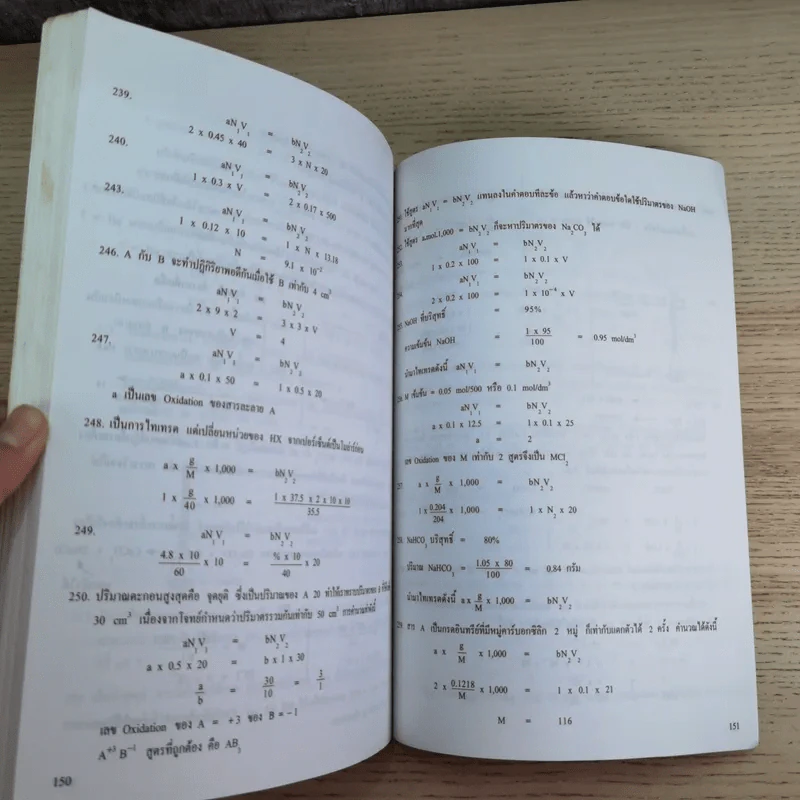 239.
aN₁V₁ = bN₂V₂
2 x 0.45 x 40 = 3 x N x 20
240.
aN₁V₁ = bN₂V₂
1 x 0.3 x V = 2 x 0.17 x 500
243.
aN₁V₁ = bN₂V₂
1 x 0.12 x 10 = 1 x N x 13.18
N = 9.1 x 10⁻²
246. A กับ B จะทำปฏิกิริยาพอดีกันเมื่อใช้ B เท่ากับ 4 cm³
aN₁V₁ = bN₂V₂
2 x 9 x 2 = 3 x 3 x V
V = 4
247.
aN₁V₁ = bN₂V₂
a x 0.1 x 50 = 1 x 0.5 x 20
a เป็นเลข Oxidation ของสารละลาย A
248. เป็นการไทเทรต แต่เปลี่ยนหน่วยของ HX จากเปอร์เซ็นต์เป็นโมลาร์ก่อน
a x g/M x 1,000 = bN₂V₂
1 x g/40 x 1,000 = 1 x 37.5 x 2 x 10 x 10/35.5
249.
aN₁V₁ = bN₂V₂
4.8 x 10/60 x 10 = % x 10/40 x 20
250. ปริมาณตะกอนสูงสุดคือ จุดยุติ ซึ่งเป็นปริมาณของ A 20 ทำให้เราทราบปริมาตรของ B
30 cm³ เนื่องจากโจทย์กำหนดว่าปริมาตรรวมกันเท่ากับ 50 cm³
aN₁V₁ = bN₂V₂
a x 0.5 x 20 = b x 1 x 30
a/b = 30/10 = 3/1
เลข Oxidation ของ A = +3 ของ B = -1
A⁺³ B⁻¹ สูตรที่ถูกต้อง คือ AB₃
150
ใช้สูตร aN₁V₁ = bN₂V₂ แทนลงในคำตอบทีละข้อ แล้วหาว่าคำตอบข้อใดใช้ปริมาตรของ NaOH
มากที่สุด
ใช้สูตร a.mol.1,000 = bN₂V₂ ก็จะหาปริมาตรของ Na₂CO₃ ได้
aN₁V₁ = bN₂V₂
1 x 0.2 x 100 = 1 x 0.1 x V
aN₁V₁ = bN₂V₂
2 x 0.2 x 100 = 1 x 10⁻⁴ x V
NaOH ที่บริสุทธิ์ = 95%
ความเข้มข้น NaOH = 1 x 95/100 = 0.95 mol/dm³
นำมาไทเทรตดังนี้ aN₁V₁ = bN₂V₂
M เข้มข้น = 0.05 mol/500 หรือ 0.1 mol/dm³
aN₁V₁ = bN₂V₂
a x 0.1 x 12.5 = 1 x 0.1 x 25
a = 2
เลข Oxidation ของ M เท่ากับ 2 สูตรจึงเป็น MCl₂
a x g/M x 1,000 = bN₂V₂
1 x 0.204/204 x 1,000 = 1 x N₂ x 20
NaHCO₃ บริสุทธิ์ = 80%
ปริมาณ NaHCO₃ = 1.05 x 80/100 = 0.84 กรัม
นำมาไทเทรตดังนี้ a x g/M x 1,000 = bN₂V₂
สาร A เป็นกรดอินทรีย์ที่มีหมู่คาร์บอกซิลิก 2 หมู่ ก็เท่ากับแตกตัวได้ 2 ครั้ง คำนวณได้ดังนี้
a x g/M x 1,000 = bN₂V₂
2 x 0.1218/M x 1,000 = 1 x 0.1 x 21
M = 116
151